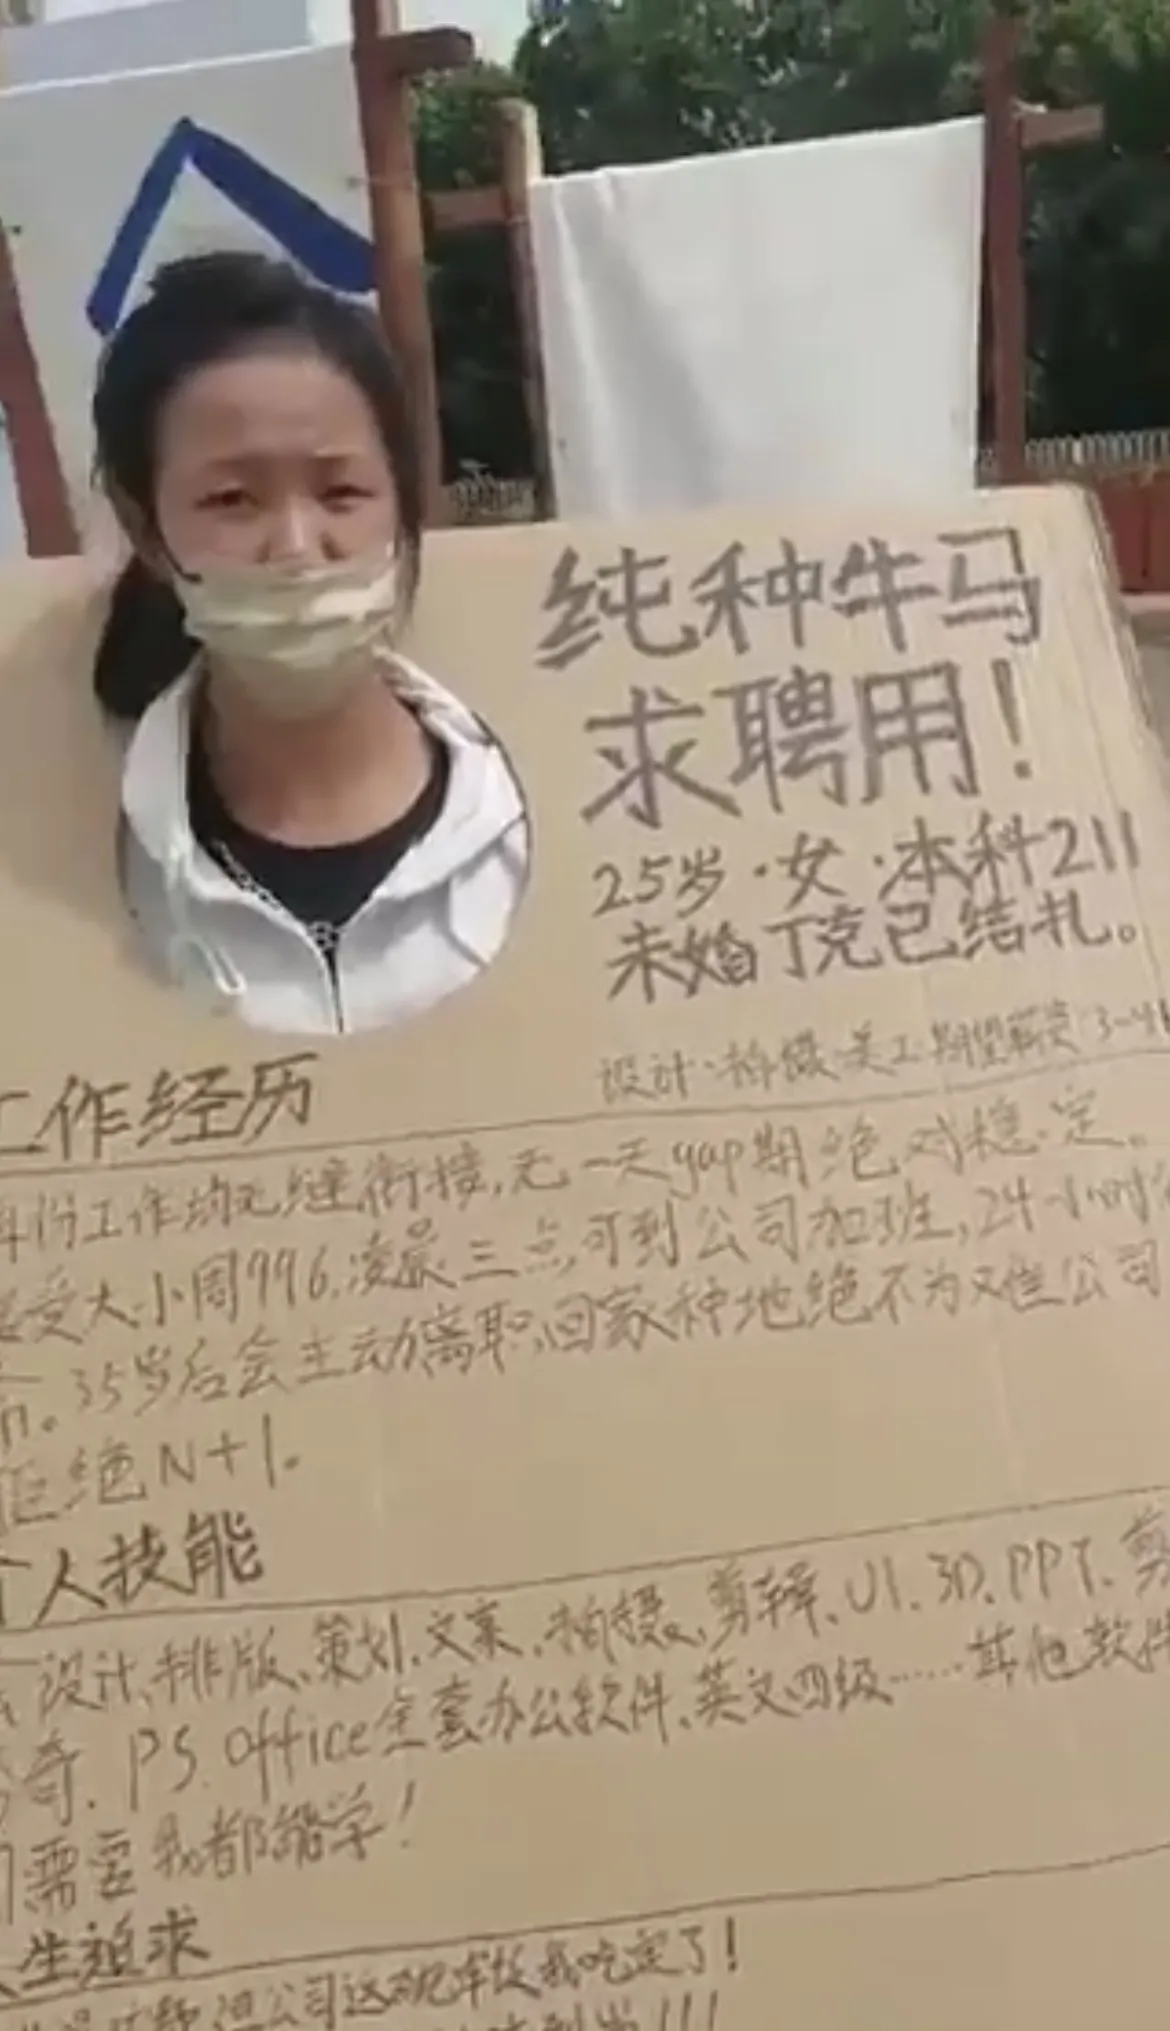 纯种牛马
求聘用!
25岁·女·本科211
未婚丁克已结扎。
设计·拍摄·美工·期望薪资:3-4
工作经历
份工作均无缝衔接,无一天gap期绝对稳定。
受大小周996.凌晨三点可到公司加班,24小时
35岁后会主动离职,回家种地绝不为难公司
拒绝N+1.
个人技能
设计、排版、策划、文案、拍摄、剪辑、UI、3D、PPT、剪
PS. office全套办公软件、英文四级……其他软件
需要我都能学!
人生追求
公司这我吃定了!
!!!